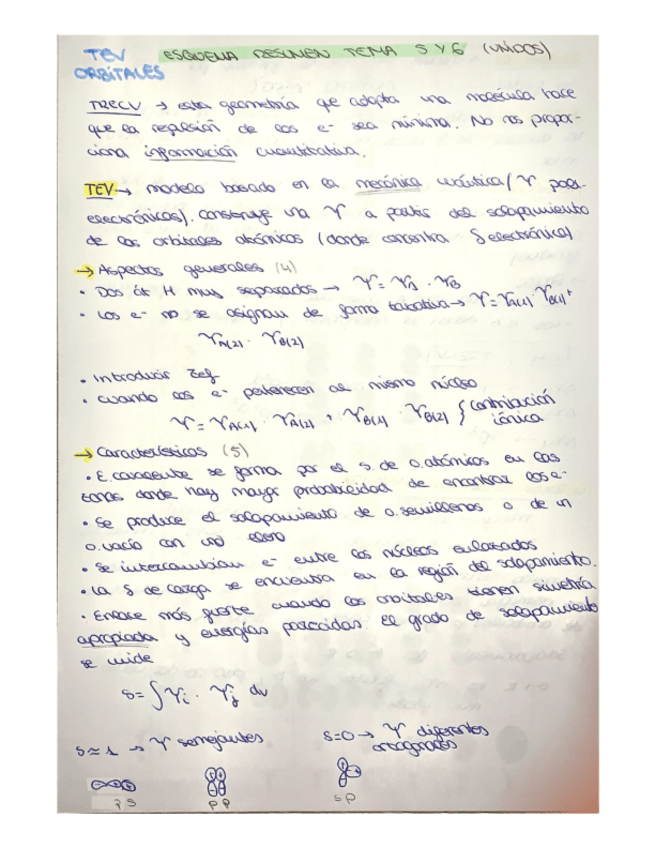 TEV ESQUEMA RESUMEN TEMA 5 Y 6 (UNIDOS)
ORBITALES
TRECV → esta geometría que adopta una molécula hace
que la repulsión de los e- sea mínima. No nos propor-
ciona información cuantitativa.
TEV → modelo basado en la mecánica cuántica (Ψ poli-
electrónicas). Construye una Ψ a partir del solapamiento
de los orbitales atómicos (donde concentra δ electrónica)
→ Aspectos generales (4)
• Dos át H muy separados → Ψ = ΨA · ΨB
• Los e- no se asignan de forma taxativa → Ψ = ΨA(1) · ΨB(2) +
ΨA(2) · ΨB(1)
• Introducir Zef
• Cuando los e- pertenecen al mismo núcleo
Ψ = ΨA(1) · ΨA(2) + ΨB(1) · ΨB(2) { contribución
iónica
→ Características (5)
• E. covalente se forma por el s. de o. atómicos en las
zonas donde hay mayor probabilidad de encontrar los e-
• Se produce el solapamiento de o. semillenos o de un
o. vacío con uno lleno
• Se intercambian e- entre los núcleos enlazados
• La δ de carga se encuentra en la región del solapamiento.
• Enlace más fuerte cuando los orbitales tienen simetría
apropiada y energías parecidas. El grado de solapamiento
se mide
s = ∫ Ψi · Ψj dv
s ≈ 1 → Ψ semejantes s = 0 → Ψ diferentes
ortogonales
PS PP SP